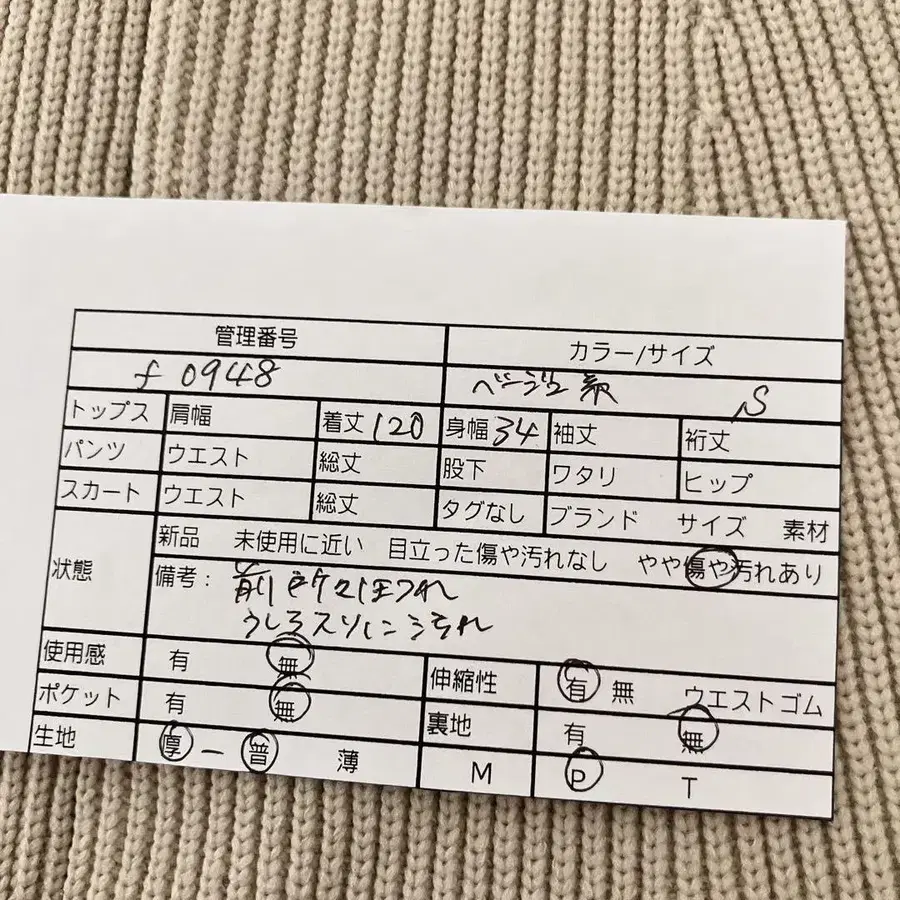 管理番号 カラー/サイズ
f 0948 ベージュ系 S
トップス 肩幅 着丈 120 身幅 34 袖丈 裄丈
パンツ ウエスト 総丈 股下 ワタリ ヒップ
スカート ウエスト 総丈 タグなし ブランド サイズ 素材
状態 新品 未使用に近い 目立った傷や汚れなし やや傷や汚れあり
備考: 前
うしろスソに汚れ
使用感 有 無 伸縮性 有 無 ウエストゴム
ポケット 有 無 裏地 有 無
生地 厚 ー 普 薄 M P T